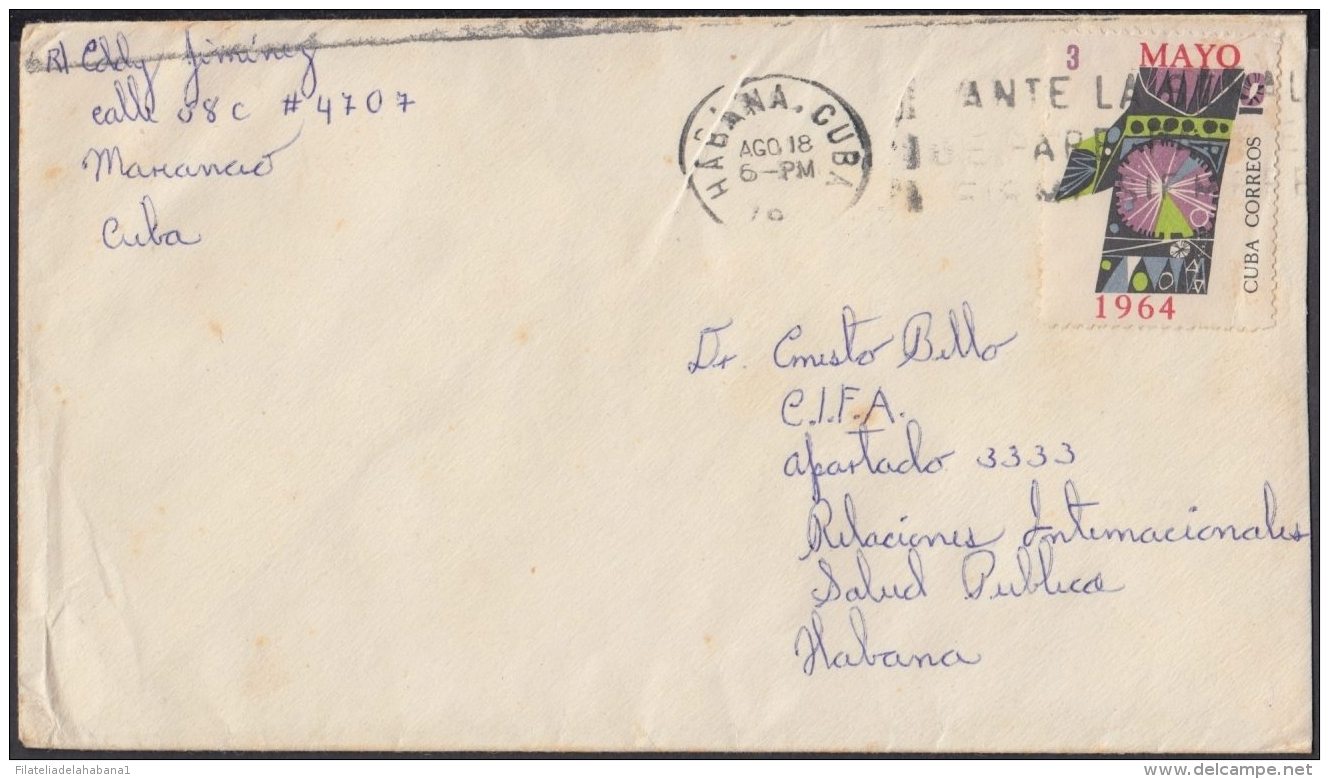 R/ Eddy Jiminez
calle 58 C # 4707
Marianao
Cuba
HABANA, CUBA
AGO 18
6-PM
76
ANTE LA
3
MAYO
CUBA CORREOS
1964
Dr. Ernesto Bello
C.I.F.A.
apartado 3333
Relaciones Internacionales
Salud Publica
Habana
Filateliadelahabana1
delcampe.net